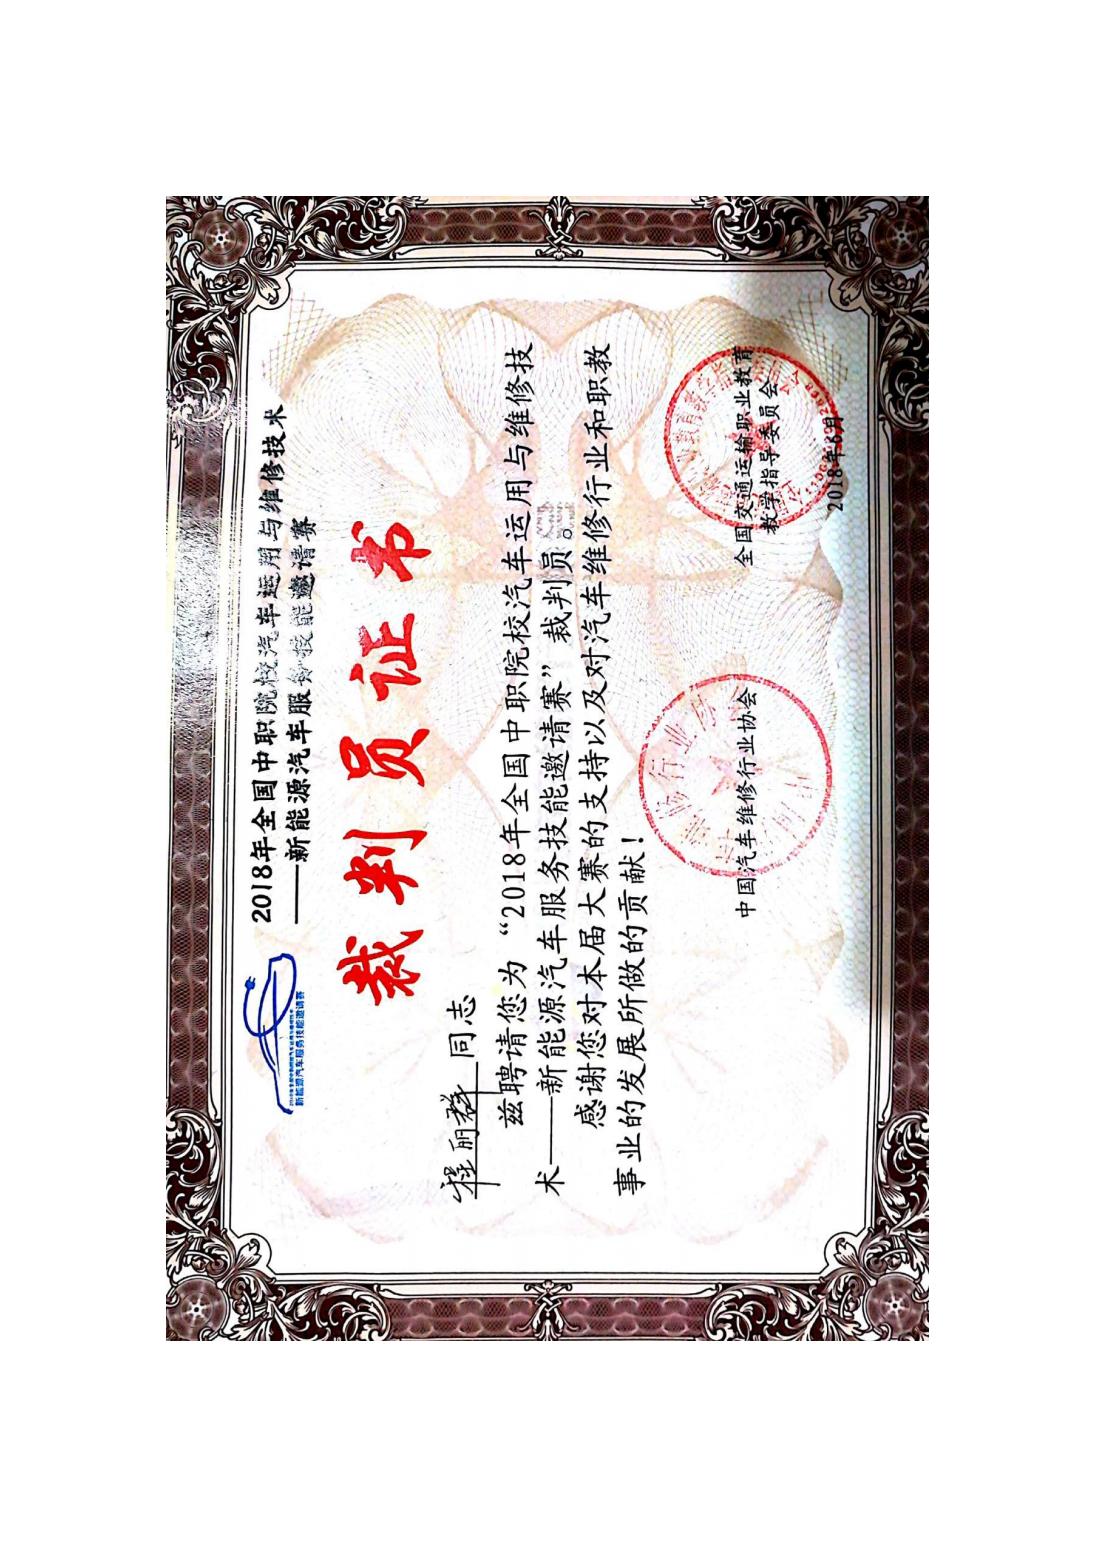 2018年全国中职院校汽车运用与维修技术
——新能源汽车服务技能邀请赛
新能源汽车服务技能邀请赛
裁判员证书
程丽群 同志
兹聘请您为“2018年全国中职院校汽车运用与维修技
术——新能源汽车服务技能邀请赛”裁判员。
感谢您对本届大赛的支持以及对汽车维修行业和职教
事业的发展所做的贡献！
中国汽车维修行业协会
全国交通运输职业教育
教学指导委员会
2018年6月